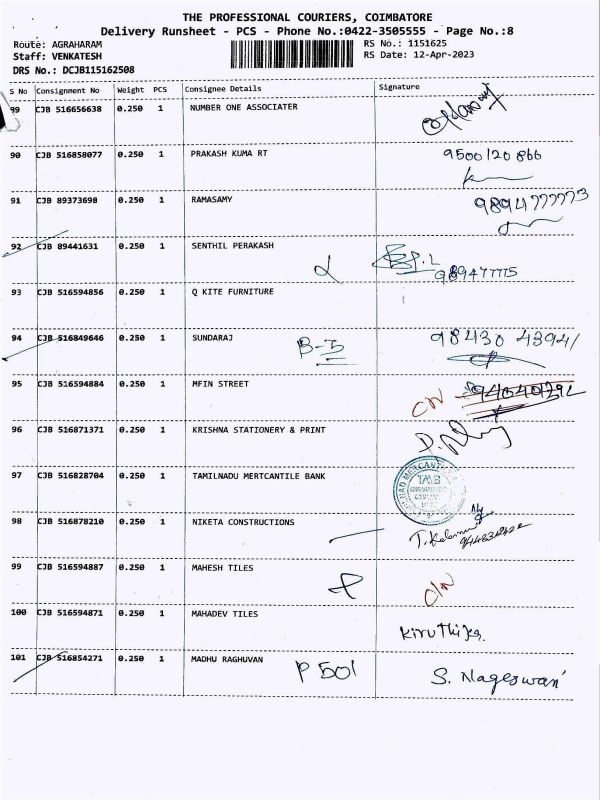 THE PROFESSIONAL COURIERS, COIMBATORE
Delivery Runsheet - PCS - Phone No.:0422-3505555 - Page No.:8
Route: AGRAHARAM RS No.: 1151625
Staff: VENKATESH RS Date: 12-Apr-2023
DRS No.: DCJB115162508
S No Consignment No Weight PCS Consignee Details Signature
89 CJB 516656638 0.250 1 NUMBER ONE ASSOCIATER
90 CJB 516858077 0.250 1 PRAKASH KUMA RT 9500120866
91 CJB 89373698 0.250 1 RAMASAMY 9894777773
92 CJB 89441631 0.250 1 SENTHIL PERAKASH
93 CJB 516594856 0.250 1 Q KITE FURNITURE
94 CJB 516849646 0.250 1 SUNDARAJ B-3 98430 43941
95 CJB 516594884 0.250 1 MFIN STREET
96 CJB 516871371 0.250 1 KRISHNA STATIONERY & PRINT
97 CJB 516828704 0.250 1 TAMILNADU MERTCANTILE BANK TMB
98 CJB 516878210 0.250 1 NIKETA CONSTRUCTIONS
99 CJB 516594887 0.250 1 MAHESH TILES
100 CJB 516594871 0.250 1 MAHADEV TILES Kiruthika
101 CJB 516854271 0.250 1 MADHU RAGHUVAN P 501 S. Nageswari